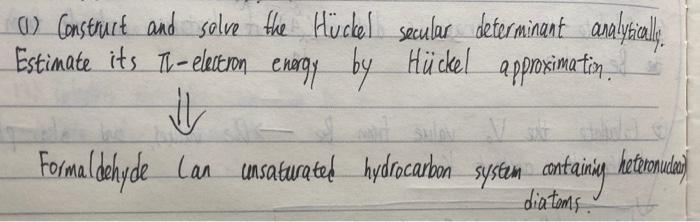 (1) Construct and solve the Hückel secular determinant analytically.
Estimate its π-electron energy by Hückel approximatin.
⇓
Formaldehyde (an unsaturated hydrocarbon system containing heteronuclear)
diatoms.